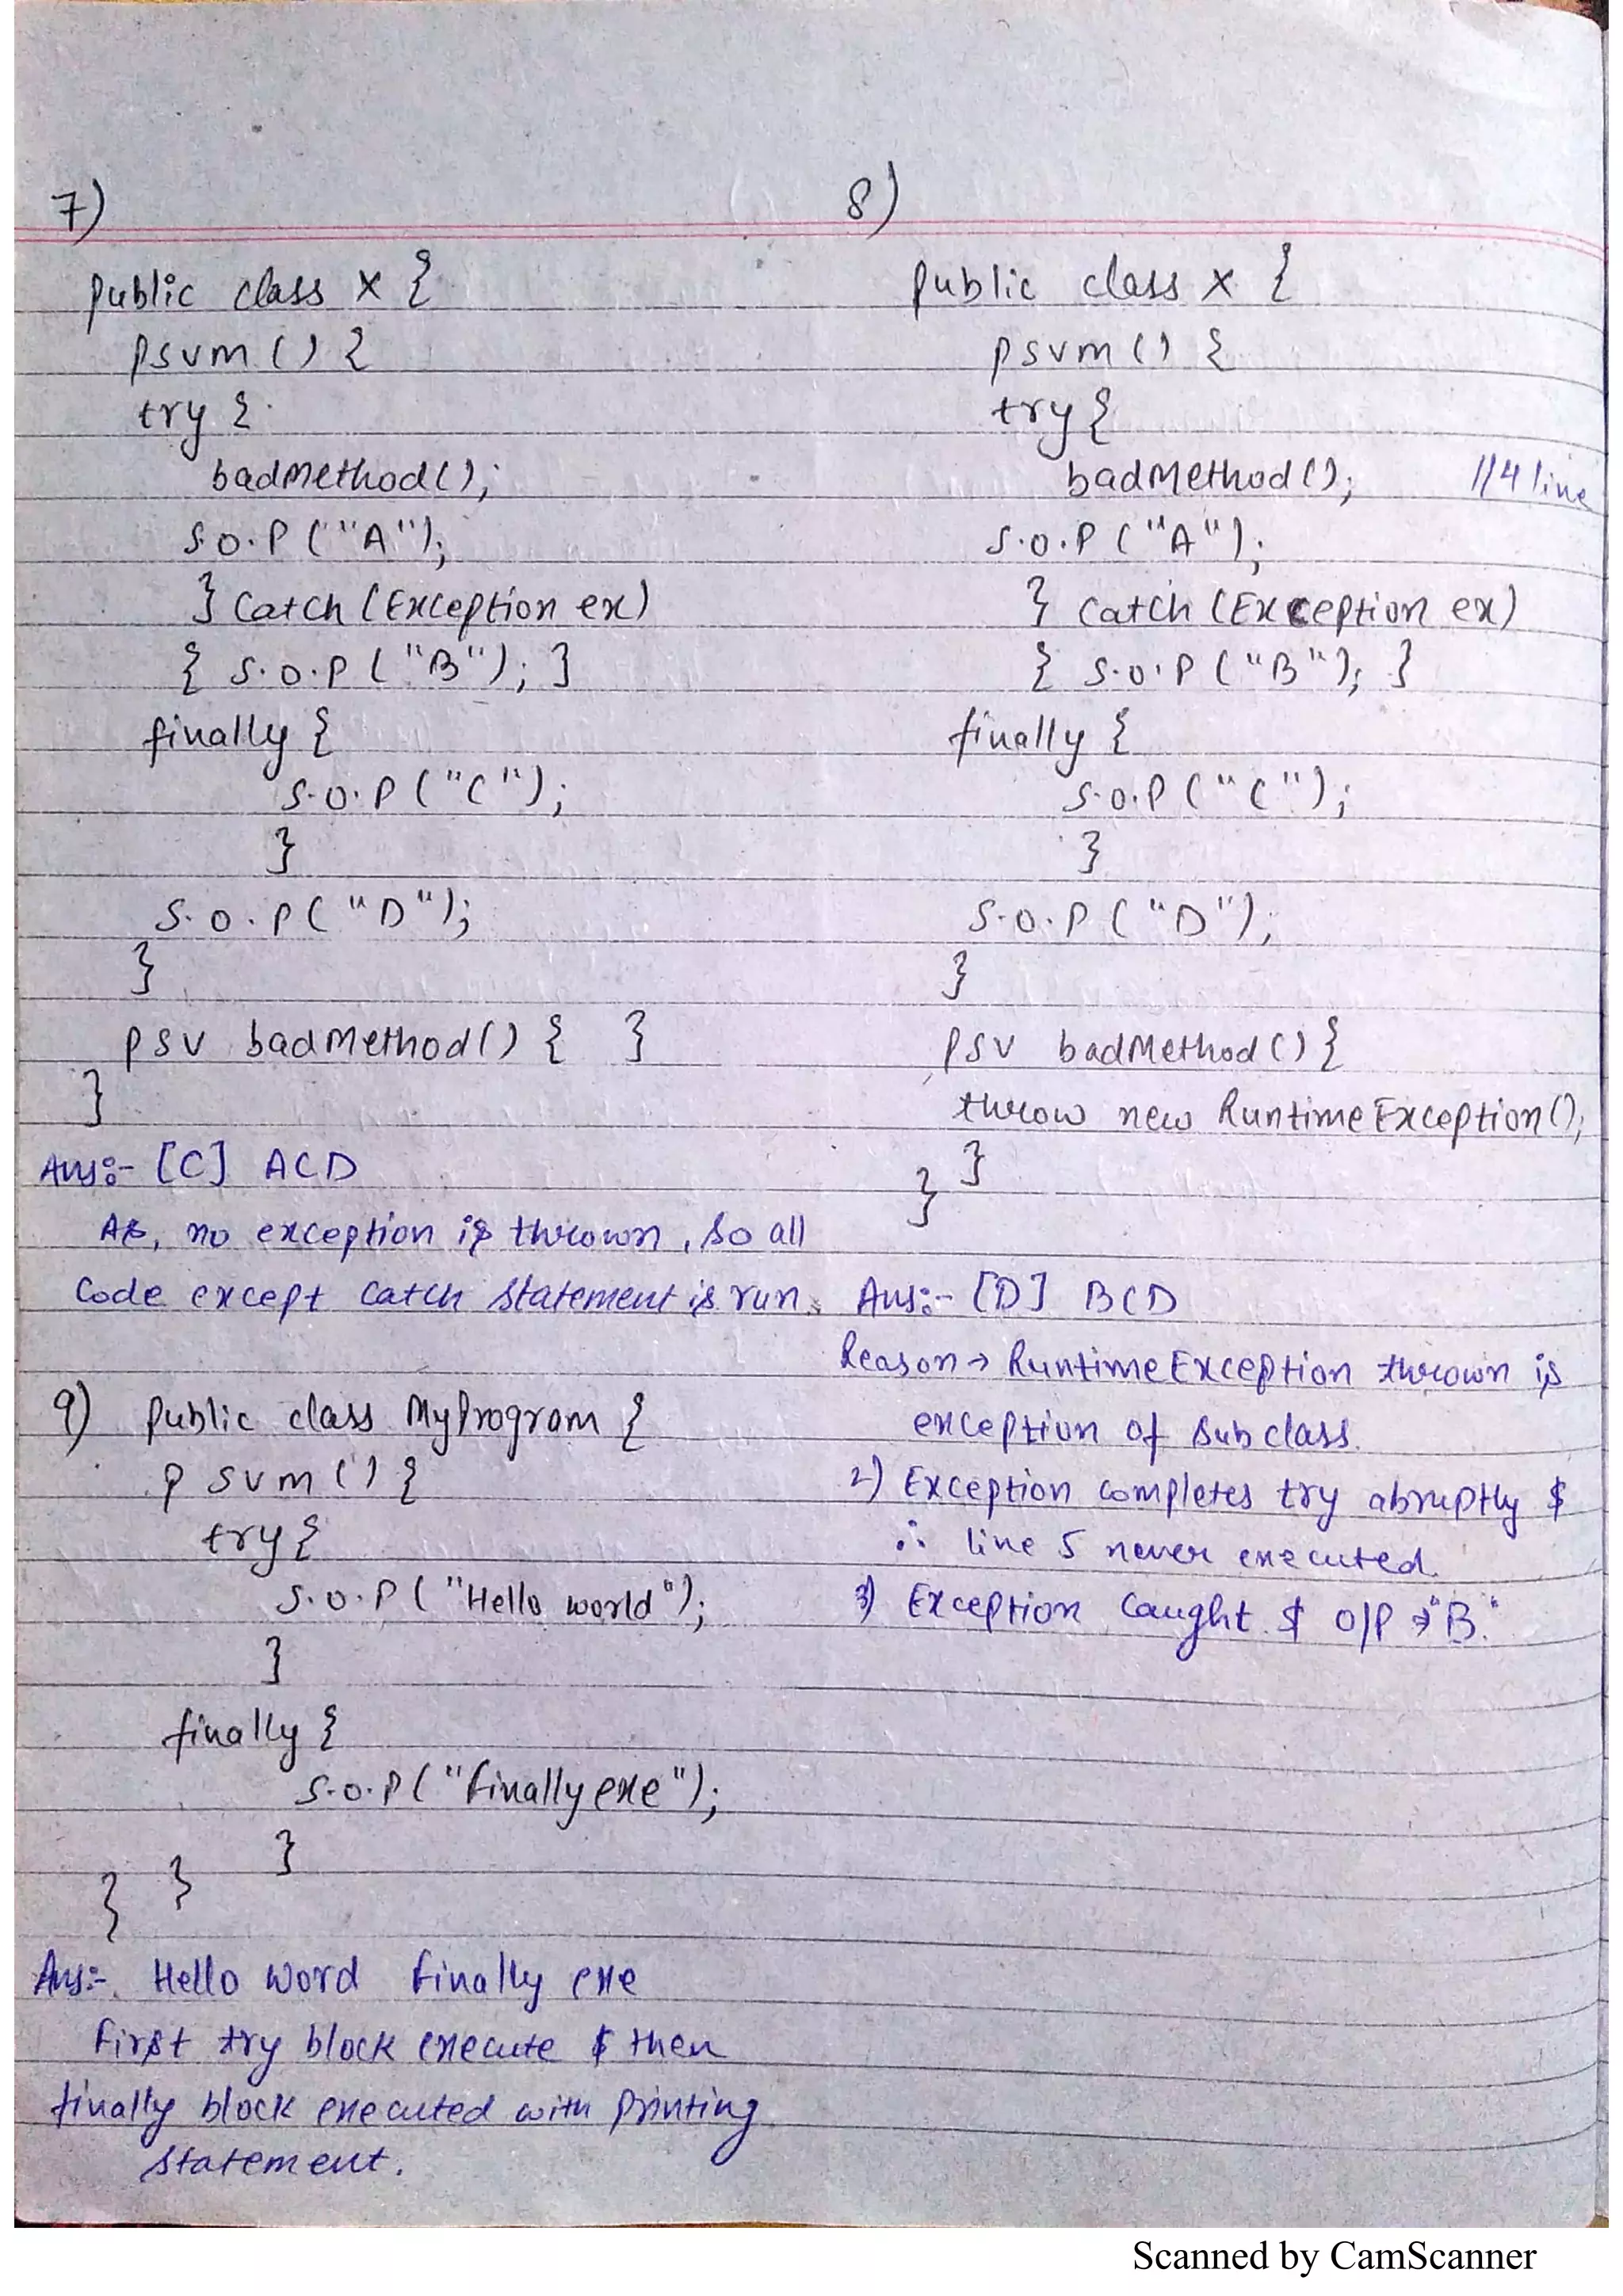 7)
public class X {
psvm () {
try {
badMethod();
S.O.P ("A");
} Catch (Exception ex)
{ S.O.P ("B"); }
finally {
S.O.P ("C");
}
S.O.P ("D");
}
psv badMethod() { }
}
Ans:- [C] ACD
As, no exception is thrown, so all
Code except catch statement is run.
8)
public class X {
psvm () {
try {
badMethod(); //4 line
S.O.P ("A");
} Catch (Exception ex)
{ S.O.P ("B"); }
finally {
S.O.P ("C");
}
S.O.P ("D");
}
psv badMethod() {
throw new RuntimeException();
}
}
Ans:- [D] BCD
Reason → RuntimeException thrown is
exception of subclass.
2) Exception completes try abruptly &
∴ line 5 never executed.
3) Exception caught & O/P → "B."
9) public class MyProgram {
psvm () {
try {
S.O.P ("Hello world");
}
finally {
S.O.P ("finally exe");
}
}
}
Ans:- Hello Word finally exe
First try block execute & then
finally block executed with printing
statement.
Scanned by CamScanner